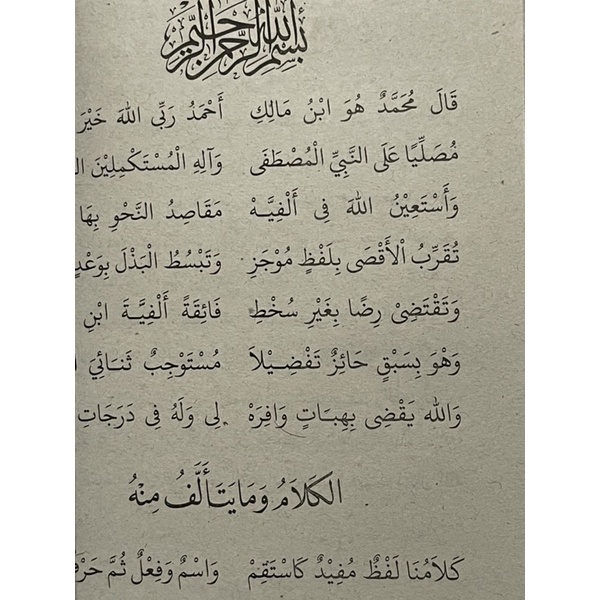 بسم الله الرحمن الرحيم
قَالَ مُحَمَّدٌ هُوَ ابْنُ مَالِكِ أَحْمَدُ رَبِّى اللهَ خَيْرَ
مُصَلِّيًا عَلَى النَّبِيِّ الْمُصْطَفَى وَآلِهِ الْمُسْتَكْمِلِيْنَ
وَأَسْتَعِيْنُ اللهَ فِى أَلْفِيَّـهْ مَقَاصِدُ النَّحْوِ بِهَا
تُقَرِّبُ الْأَقْصَى بِلَفْظٍ مُوْجَزِ وَتَبْسُطُ الْبَذْلَ بِوَعْدٍ
وَتَقْتَضِىْ رِضًا بِغَيْرِ سُخْطِ فَائِقَةً أَلْفِيَّةَ ابْنِ
وَهْوَ بِسَبْقٍ حَائِزٌ تَفْضِيْلاَ مُسْتَوْجِبٌ ثَنَائِيَ
وَالله يَقْضِى بِهِبَاتٍ وَافِرَهْ لِى وَلَهُ فِى دَرَجَاتِ
الكَلاَمُ وَمَا يَتَأَلَّفُ مِنْهُ
كَلاَمُنَا لَفْظٌ مُفِيْدٌ كَاسْتَقِمْ وَاسْمٌ وَفِعْلٌ ثُمَّ حَرْفٌ